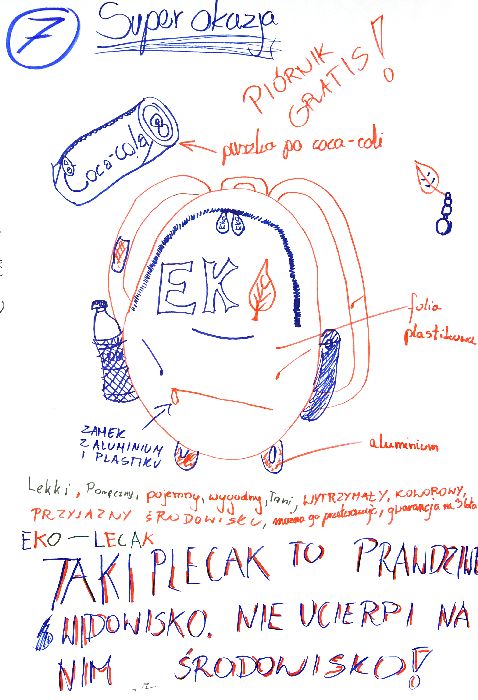 7
Super okazja
PIÓRNIK
GRATIS!
Coca-cola
puszka po coca-coli
EK
folia
plastikowa
ZAMEK
Z ALUMINIUM
I PLASTIKU
aluminium
Lekki, Pomocny, pojemny, wygodny, Tani, WYTRZYMAŁY, KOLOROWY,
PRZYJAZNY ŚRODOWISKU, można go przetworzyć, gwarancja na lata
EKO-LECAK
TAKI PLECAK TO PRAWDZIWE
WIDOWISKO. NIE UCIERPI NA
NIM ŚRODOWISKO!